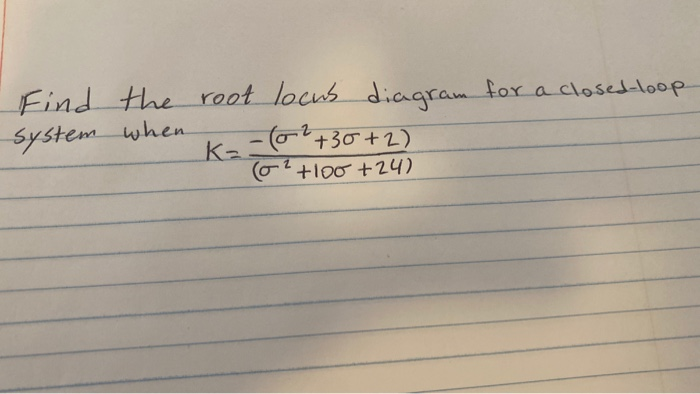 Find the root locus diagram for a closed-loop
system when
K = -(σ²+3σ+2)
(σ²+10σ+24)